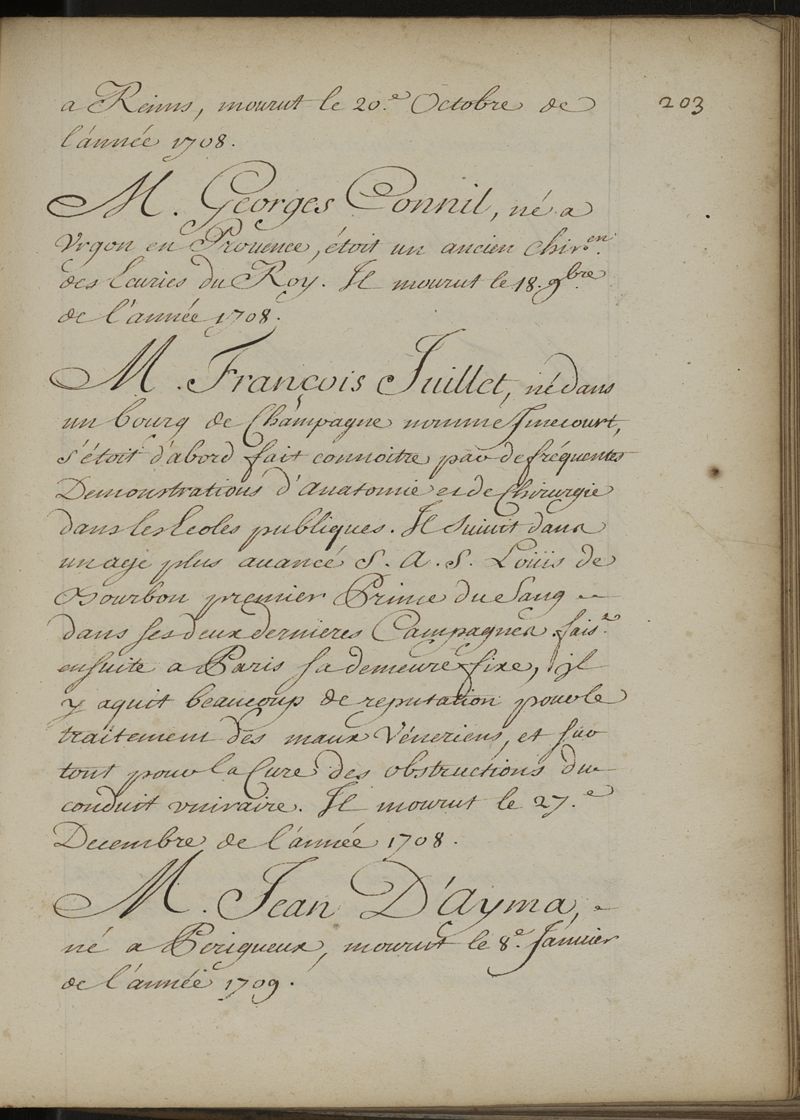 a Reims, mourut le 20.e Octobre de
203
l'année 1708.
M. Georges Connil, né a
Vrgon en Prouence, étoit un ancien Chir.en
des Ecuries du Roy. Il mourut le 18. 9bre
de l'année 1708.
M. François Juillet, né dans
un bourg de Champagne nommé Imecourt,
s'étoit d'abord fait connoitre par de fréquentes
Demonstrations d'anatomie et de Chirurgie
dans les Ecoles publiques. Il suiuit dans
un age plus auancé S. A. S. Loüis de
Bourbon premier Prince du Sang
dans ses deux dernieres Campagnes fais.t
ensuite a Paris sa demeure fixe, il
y aquit beaucoup de reputation pour le
traitement des maux Véneriens, et sur
tout pour la Cure des obstructions du
conduit vriraire. Il mourut le 27.e
Decembre de l'année 1708.
M. Jean D'ayma,
né a Perigueux, mourut le 8.e Januier
de l'année 1709.